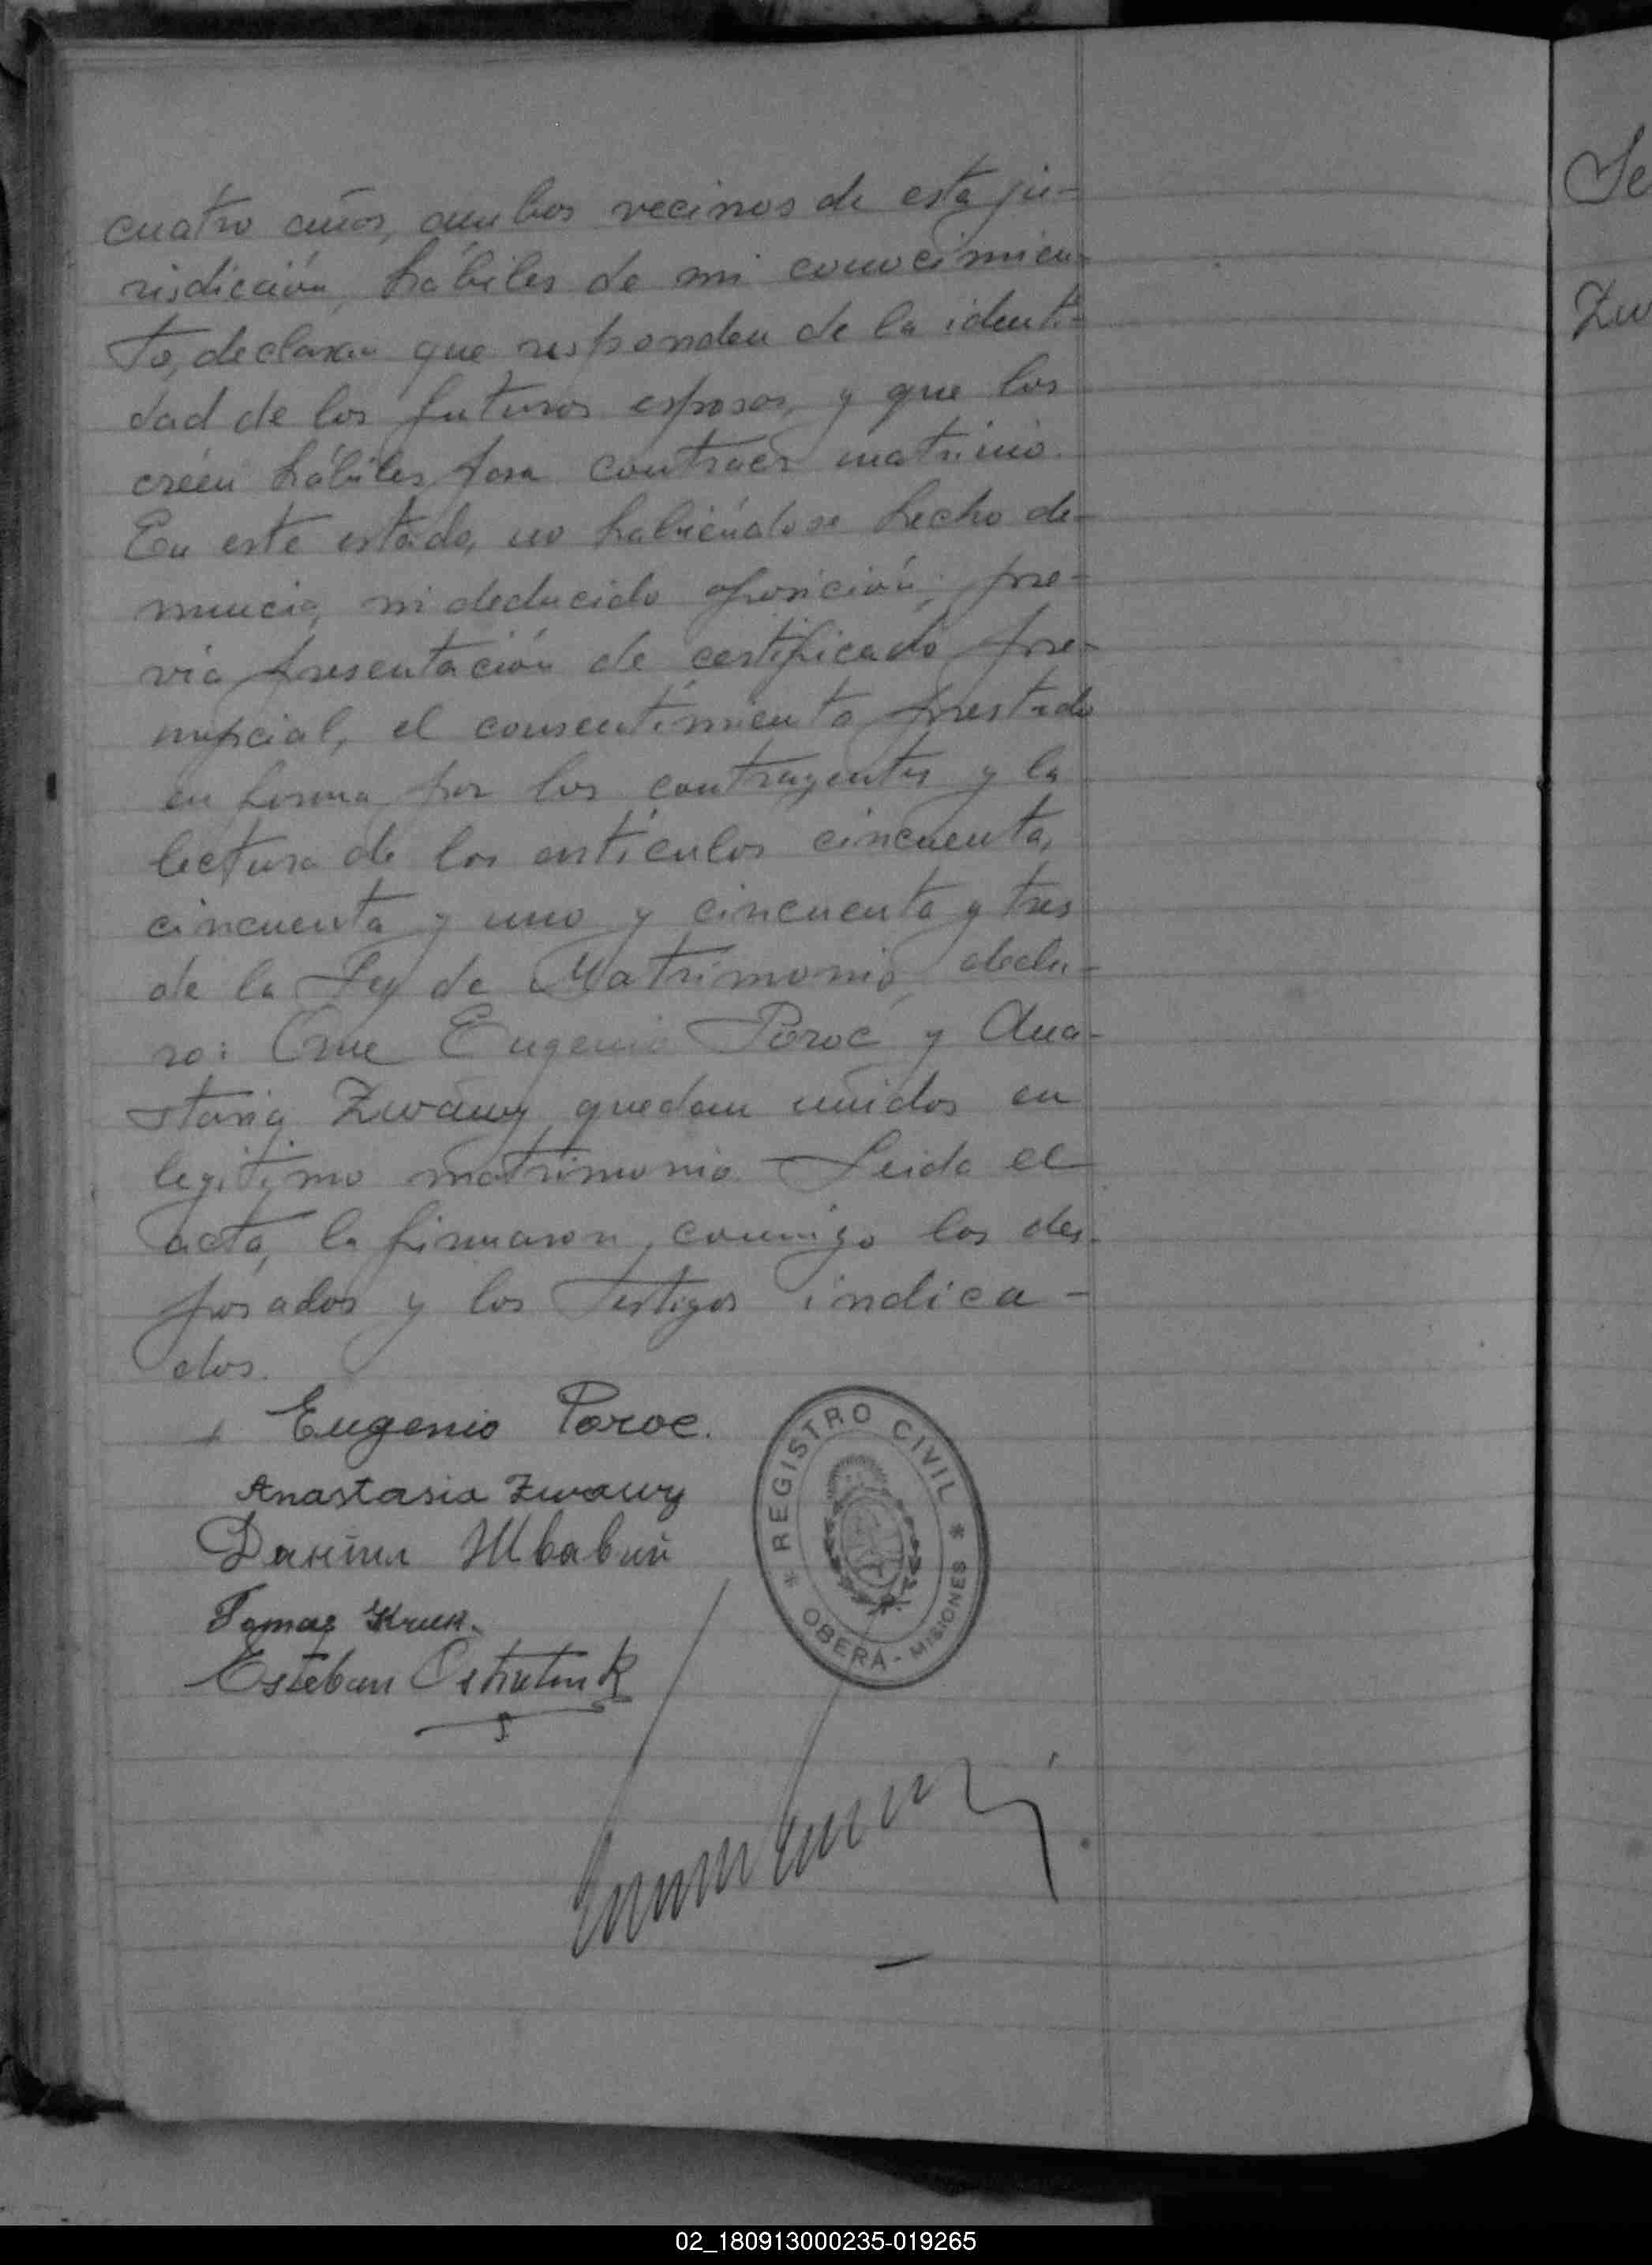 cuatro años, ambos vecinos de esta ju-
risdicción, hábiles de mi conocimien-
to, declaran que responden de la identi-
dad de los futuros esposos, y que los
créen hábiles para contraer matrinio.
En este estado, no habiéndose hecho de-
nuncia, ni deducido oposición; pre-
via presentación de certificado pre-
nupcial, el consentimiento prestado
en forma por los contrayentes y la
lectura de los artículos cincuenta,
cincuenta y uno y cincuenta y tres
de la Ley de Matrimonio, decla-
ro: Que Eugenio Poroc y Ana-
stasia Zwawy quedan unidos en
legitimo matrimonio. Leida el
acta, la firmaron, conmigo los des-
posados y los testigos indica-
dos.
Eugenio Poroc.
Anastasia Zwawy
Tomas Kruk.
Esteban
REGISTRO CIVIL
* OBERÁ - MISIONES *
Se
Zw
02_180913000235-019265